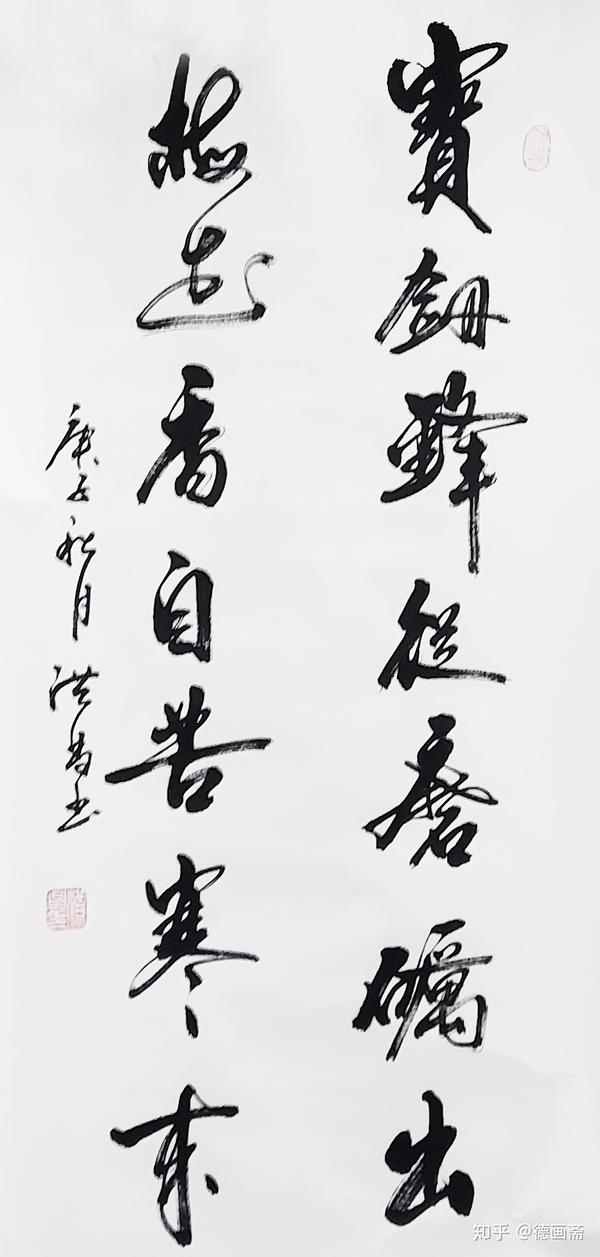 寶劍鋒從磨礪出
梅花香自苦寒來
庚子秋月洪昌書
知乎 @德画斋